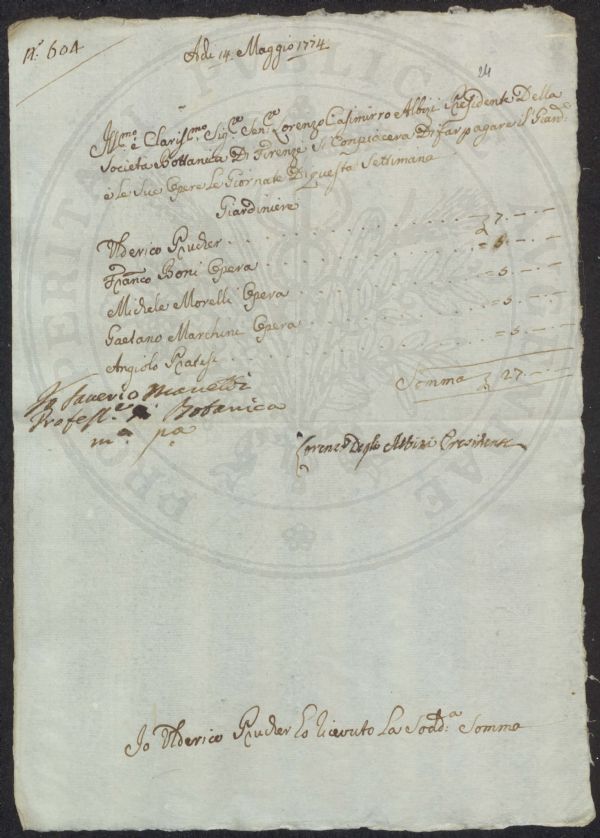 N.° 604
Adi 14. Maggio 1774
24
Ill.mo e Claris.mo Sig.re Sen.re Lorenzo Casimirro Albizi Presidente Della
Societa Bottanica Di Firenze Si Compiacera Di far pagare il Giard.
e le Sue Opere le Giornate Di questa Settimana
Giardiniere
Ulderico Prucher 7. — —
Franco Boni Opera = 5. — —
Michele Morelli Opera = 5. — —
Gaetano Marchini Opera = 5. — —
Angiolo Pratesi = 5. — —
Somma 27. — —
Saverio Manetti
Profess.e di Botanica
m.a p.a
Lorenzo Degli Albizi Presidente
Io Ulderico Prucher ho ricevuto La Sodd.a Somma
PROSPERITATI PUBLICAE AUGENDAE